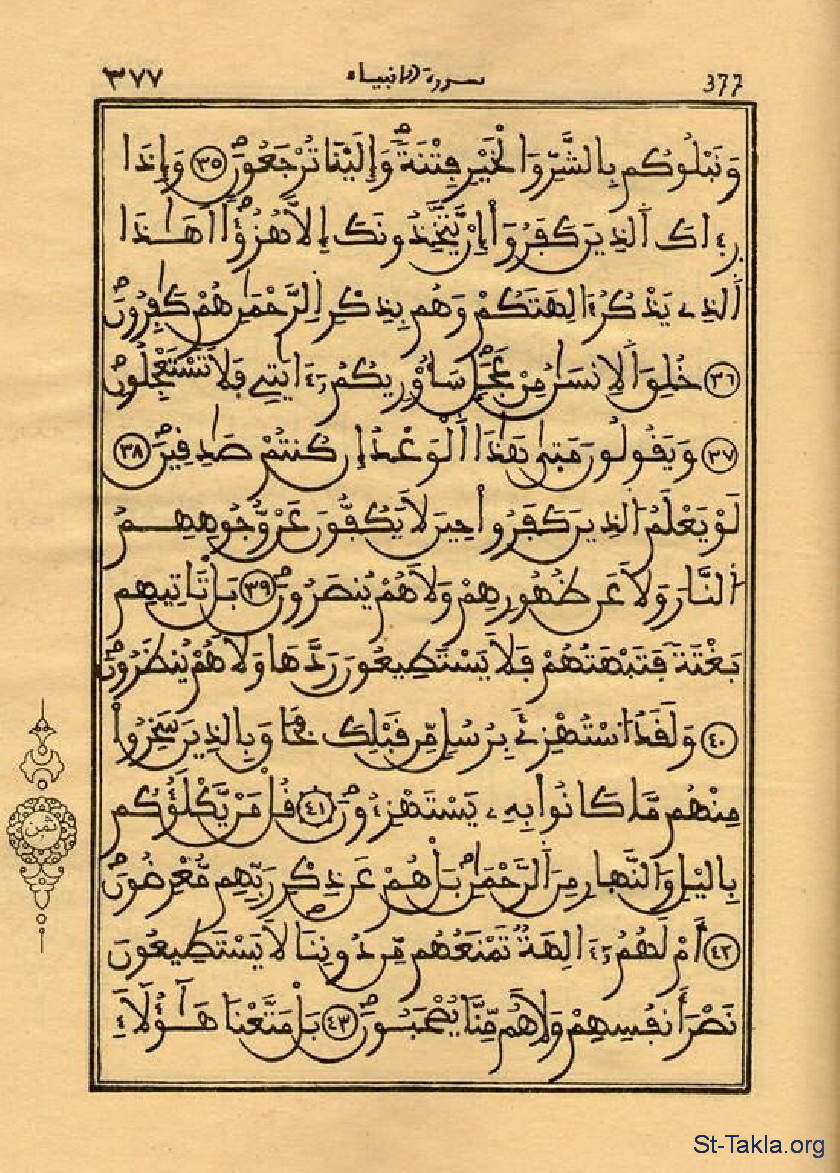 377 سورة الانبياء ٣٧٧
وَنَبْلُوكُم بِالشَّرِّ وَالْخَيْرِ فِتْنَةً وَإِلَيْنَا تُرْجَعُونَ ٣٥ وَإِذَا
رِءَاكَ ٱلذِينَ كَفَرُوٓاْ إِنْ يَّتَّخِذُونَكَ إِلَّا هُزُؤًا أَهَٰذَا
ٱلذِے يَذْكُرُ ءَالِهَتَكُمْ وَهُم بِذِكْرِ ٱلرَّحْمَٰنِ هُمْ كَٰفِرُونَ
٣٦ خُلِقَ ٱلِانسَٰنُ مِنْ عَجَلٍ سَأُوْرِيكُمُ ءَايَٰتِے فَلَا تَسْتَعْجِلُونِ
٣٧ وَيَقُولُونَ مَتَىٰ هَٰذَا ٱلْوَعْدُ إِن كُنتُمْ صَٰدِقِينَ ٣٨
لَوْ يَعْلَمُ ٱلذِينَ كَفَرُواْ حِينَ لَا يَكُفُّونَ عَنْ وُّجُوهِهِمُ
ٱلنَّارَ وَلَا عَن ظُهُورِهِمْ وَلَا هُمْ يُنصَرُونَ ٣٩ بَلْ تَاتِيهِم
بَغْتَةً فَتَبْهَتُهُمْ فَلَا يَسْتَطِيعُونَ رَدَّهَا وَلَا هُمْ يُنظَرُونَ
٤٠ وَلَقَدُ ٱسْتُهْزِئَ بِرُسُلٍ مِّن قَبْلِكَ فَحَاقَ بِالذِينَ سَخِرُواْ
مِنْهُم مَّا كَانُواْ بِهِۦ يَسْتَهْزِءُونَ ٤١ قُلْ مَنْ يَّكْلَؤُكُم
بِاليْلِ وَالنَّهارِ مِنَ ٱلرَّحْمَٰنِ بَلْ هُمْ عَن ذِكْرِ رَبِّهِم مُّعْرِضُونَ
٤٢ أَمْ لَهُمُ ءَالِهَةٌ تَمْنَعُهُم مِّن دُونِنَا لَا يَسْتَطِيعُونَ
نَصْرَ أَنفُسِهِمْ وَلَا هُم مِّنَّا يُصْحَبُونَ ٤٣ بَلْ مَتَّعْنَا هَٰٓؤُلَآءِ
ثمن
St-Takla.org